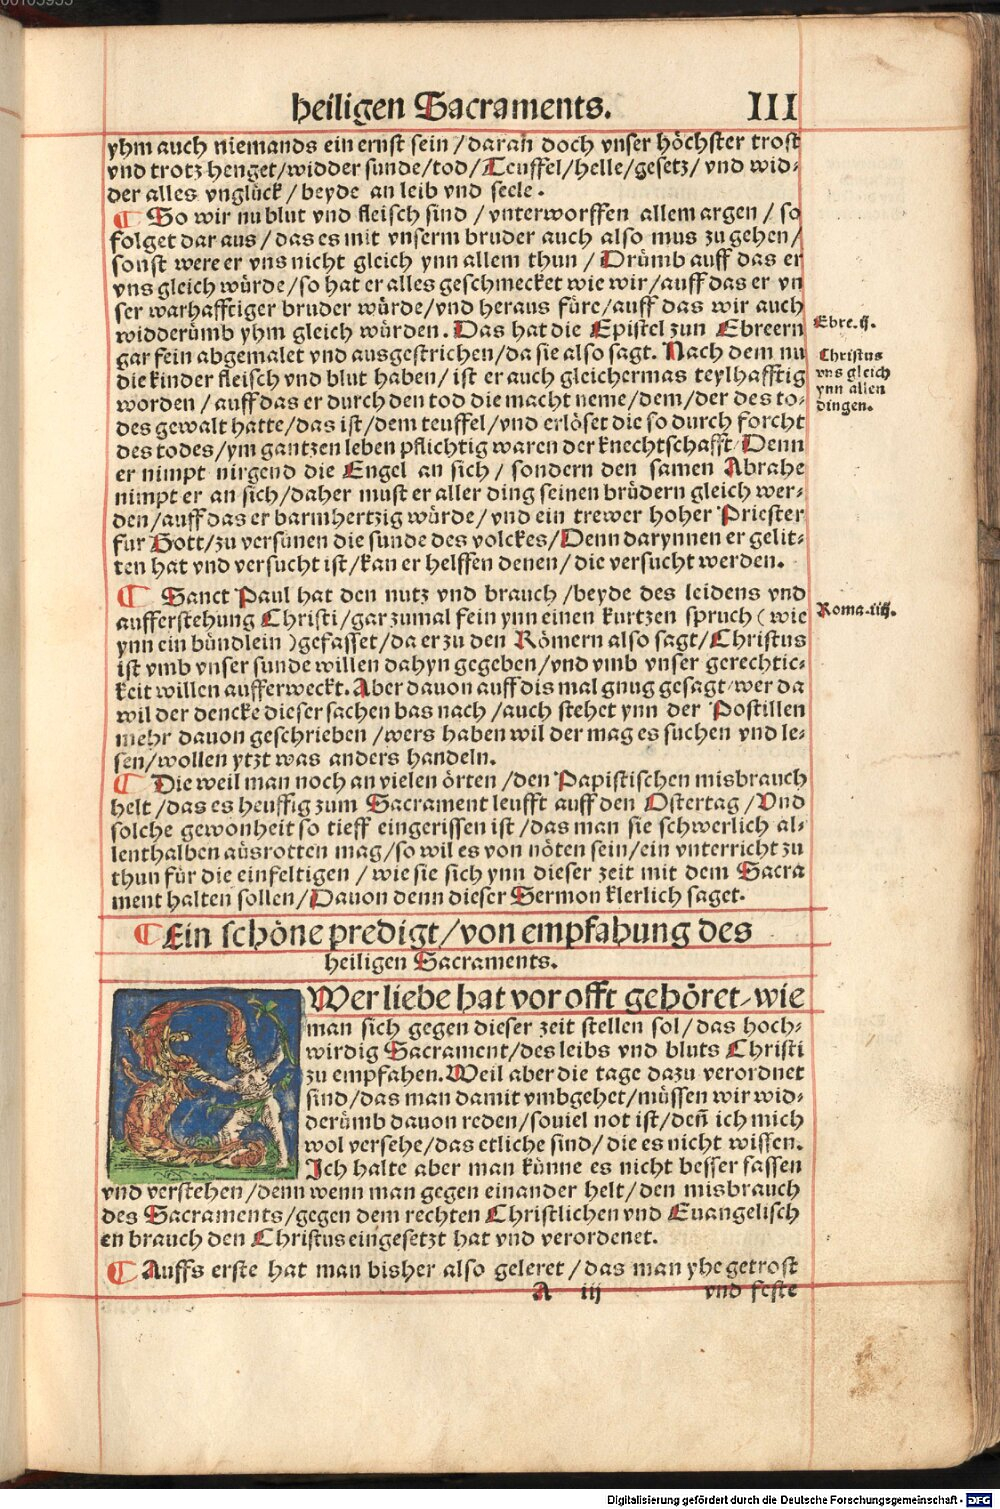 00103955
heiligen Sacraments. III
yhm auch niemands ein ernst sein / daran doch vnser höchster trost
vnd trotz henget / widder sunde / tod / Teuffel / helle / gesetz / vnd wid-
der alles vnglück / beyde an leib vnd seele.
¶ So wir nu blut vnd fleisch sind / vnterworffen allem argen / so
folget dar aus / das es mit vnserm bruder auch also mus zu gehen /
sonst were er vns nicht gleich ynn allem thun / Drümb auff das er
vns gleich würde / so hat er alles geschmecket wie wir / auff das er vn
ser warhafftiger bruder würde / vnd heraus füre / auff das wir auch
widderümb yhm gleich würden. Das hat die Epistel zun Ebreern
Ebre. ij.
gar fein abgemalet vnd ausgestrichen / da sie also sagt. Nach dem nu
die kinder fleisch vnd blut haben / ist er auch gleichermas teylhafftig
worden / auff das er durch den tod die macht neme / dem / der des to-
des gewalt hatte / das ist / dem teuffel / vnd erlöset die so durch forcht
Christus
vns gleich
ynn allen
dingen.
des todes / ym gantzen leben pflichtig waren der knechtschafft / Denn
er nimpt nirgend die Engel an sich / sondern den samen Abrahe
nimpt er an sich / daher must er aller ding seinen brüdern gleich wer-
den / auff das er barmhertzig würde / vnd ein trewer hoher Priester
fur Gott / zu versünen die sunde des volckes / Denn darynnen er gelit-
ten hat vnd versucht ist / kan er helffen denen / die versucht werden.
¶ Sanct Paul hat den nutz vnd brauch / beyde des leidens vnd
aufferstehung Christi / gar zumal fein ynn einen kurtzen spruch ( wie
Roma. iiij.
ynn ein bündlein ) gefasset / da er zu den Römern also sagt / Christus
ist vmb vnser sunde willen dahyn gegeben / vnd vmb vnser gerechtic-
keit willen aufferweckt. Aber dauon auff dis mal gnug gesagt / wer da
wil der dencke dieser sachen bas nach / auch stehet ynn der Postillen
mehr dauon geschrieben / wers haben wil der mag es suchen vnd le-
sen / wollen ytzt was anders handeln.
¶ Die weil man noch an vielen örten / den Papistischen misbrauch
helt / das es heuffig zum Sacrament leufft auff den Ostertag / Vnd
solche gewonheit so tieff eingerissen ist / das man sie schwerlich al-
lenthalben aüsrotten mag / so wil es von nöten sein / ein vnterricht zu
thun für die einfeltigen / wie sie sich ynn dieser zeit mit dem Sacra
ment halten sollen / Dauon denn dieser Sermon klerlich saget.
¶ Ein schöne predigt / von empfahung des
heiligen Sacraments.
Wer liebe hat vor offt gehöret / wie
man sich gegen dieser zeit stellen sol / das hoch-
wirdig Sacrament / des leibs vnd bluts Christi
zu empfahen. Weil aber die tage dazu verordnet
sind / das man damit vmbgehet / müssen wir wid-
derümb dauon reden / souiel not ist / deñ ich mich
wol versehe / das etliche sind / die es nicht wissen.
Ich halte aber man künne es nicht besser fassen
vnd verstehen / denn wenn man gegen einander helt / den misbrauch
des Sacraments / gegen dem rechten Christlichen vnd Euangelisch
en brauch den Christus eingesetzt hat vnd verordenet.
¶ Auffs erste hat man bisher also geleret / das man yhe getrost
A iij vnd feste
Digitalisierung gefördert durch die Deutsche Forschungsgemeinschaft - DFG